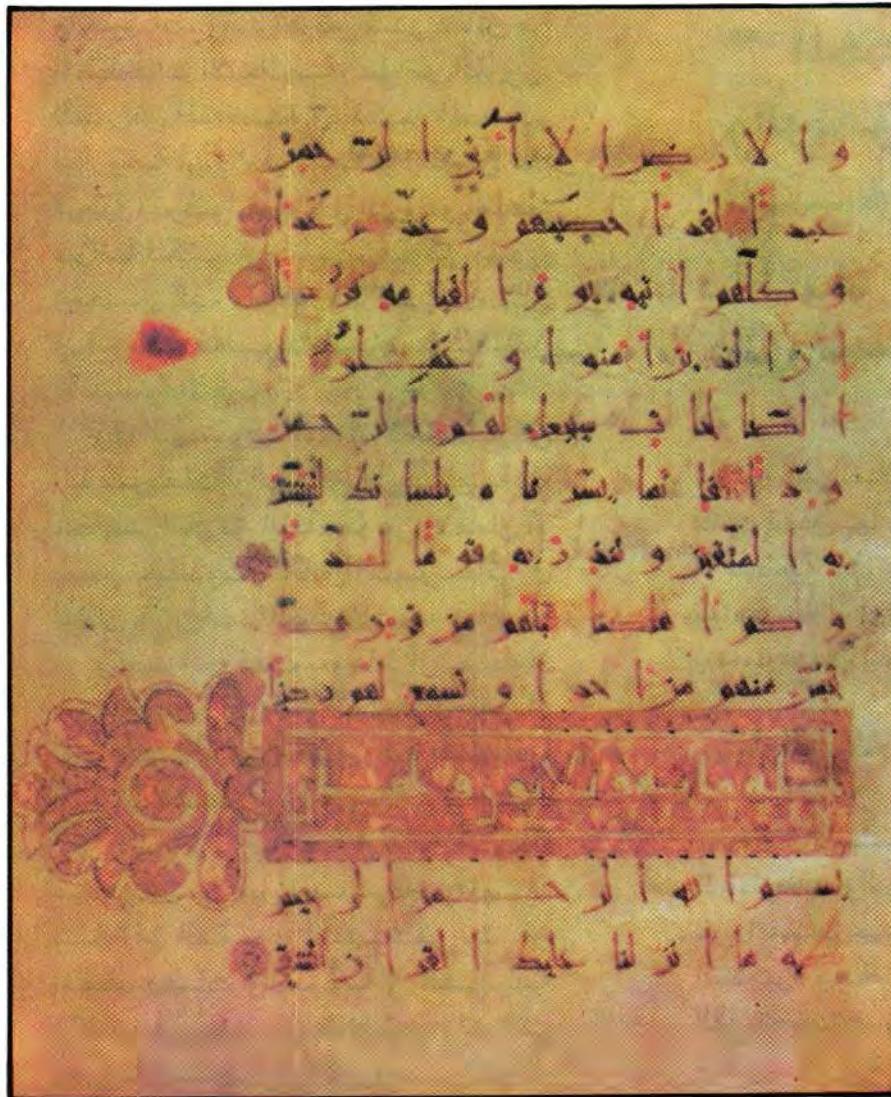 و الارض الا آتي الرحمن
عبدا لقد احصيهم و عدهم عدا
و كلهم اتيه يوم القيامه فردا
ان الذين امنوا و عملوا
الصالحات سيجعل لهم الرحمن
ودا فانما يسرناه بلسانك لتبشر
به المتقين و تنذر به قوما لدا
و كم اهلكنا قبلهم من قرن هل
تحس منهم من احد او تسمع لهم ركزا
مايه و ثلاثون و
بسم الله الرحمن الرحيم
طه ما انزلنا عليك القران لتشقى